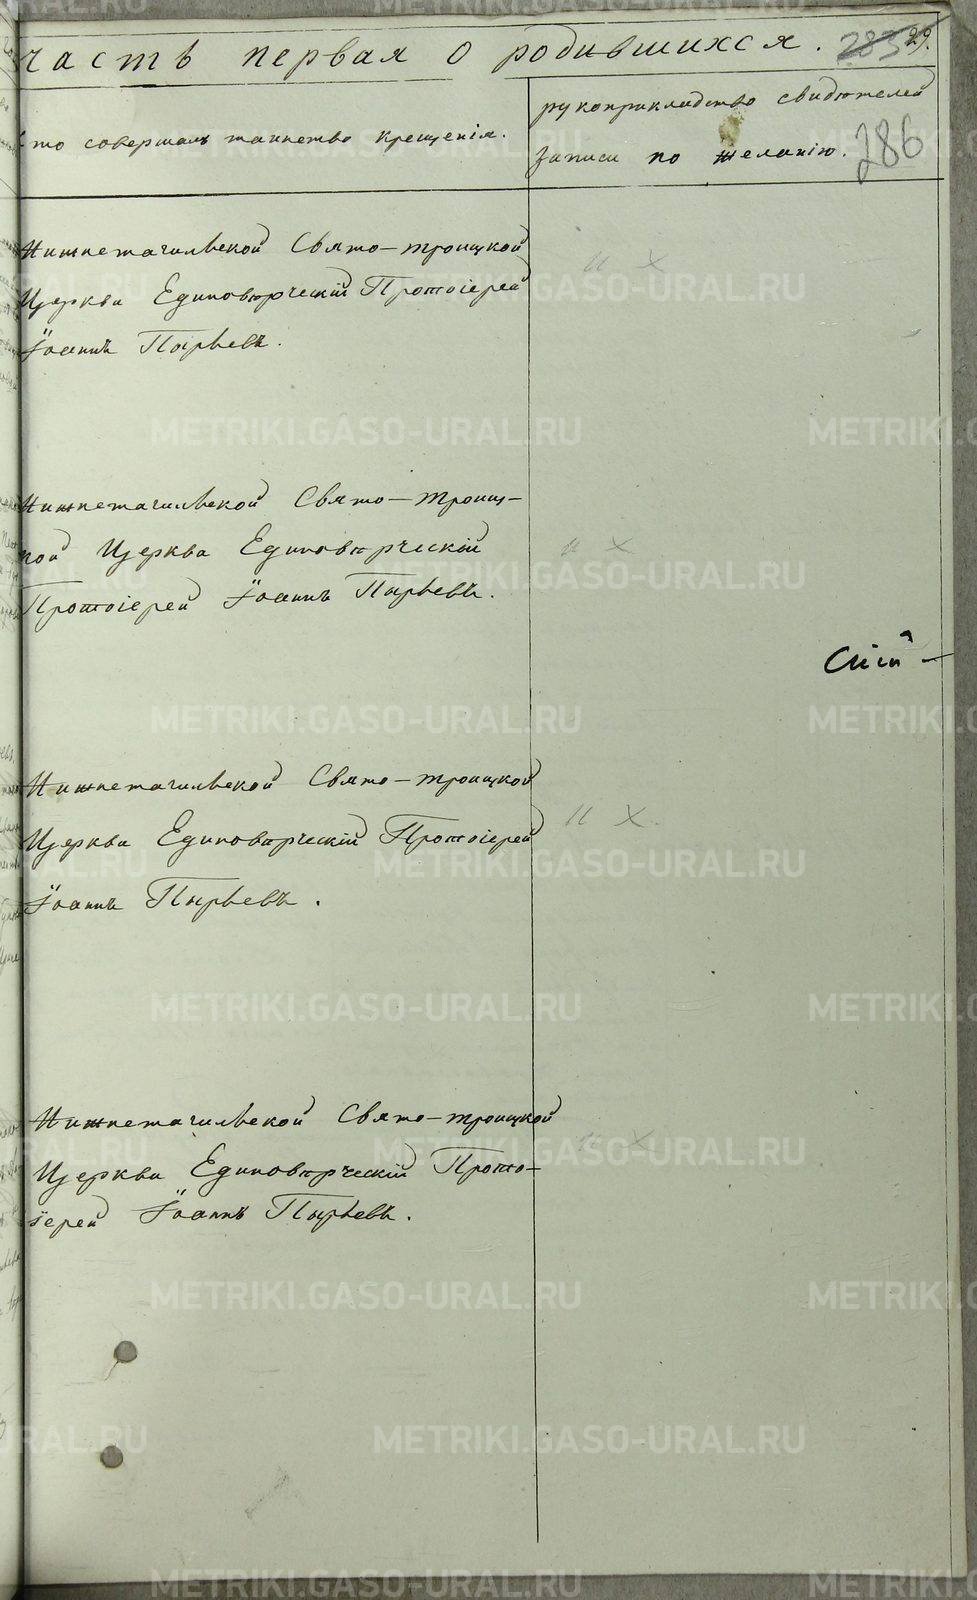 часть первая о родившихся. 283 29.
286
то совершалъ таинство крещенія.
рукоприкладство свидѣтелей
записи по желанію.
Нижнетагильской Свято-троицкой
Церкви Единовѣрческій Протоіерей
Іоаннъ Пырьевъ.
Нижнетагильской Свято-троиц-
кой Церкви Единовѣрческій
Протоіерей Іоаннъ Пырьевъ.
Нижнетагильской Свято-троицкой
Церкви Единовѣрческій Протоіерей
Іоаннъ Пырьевъ.
Нижнетагильской Свято-троицкой
Церкви Единовѣрческій Прото-
іерей Іоаннъ Пырьевъ.
METRIKI.GASO-URAL.RU